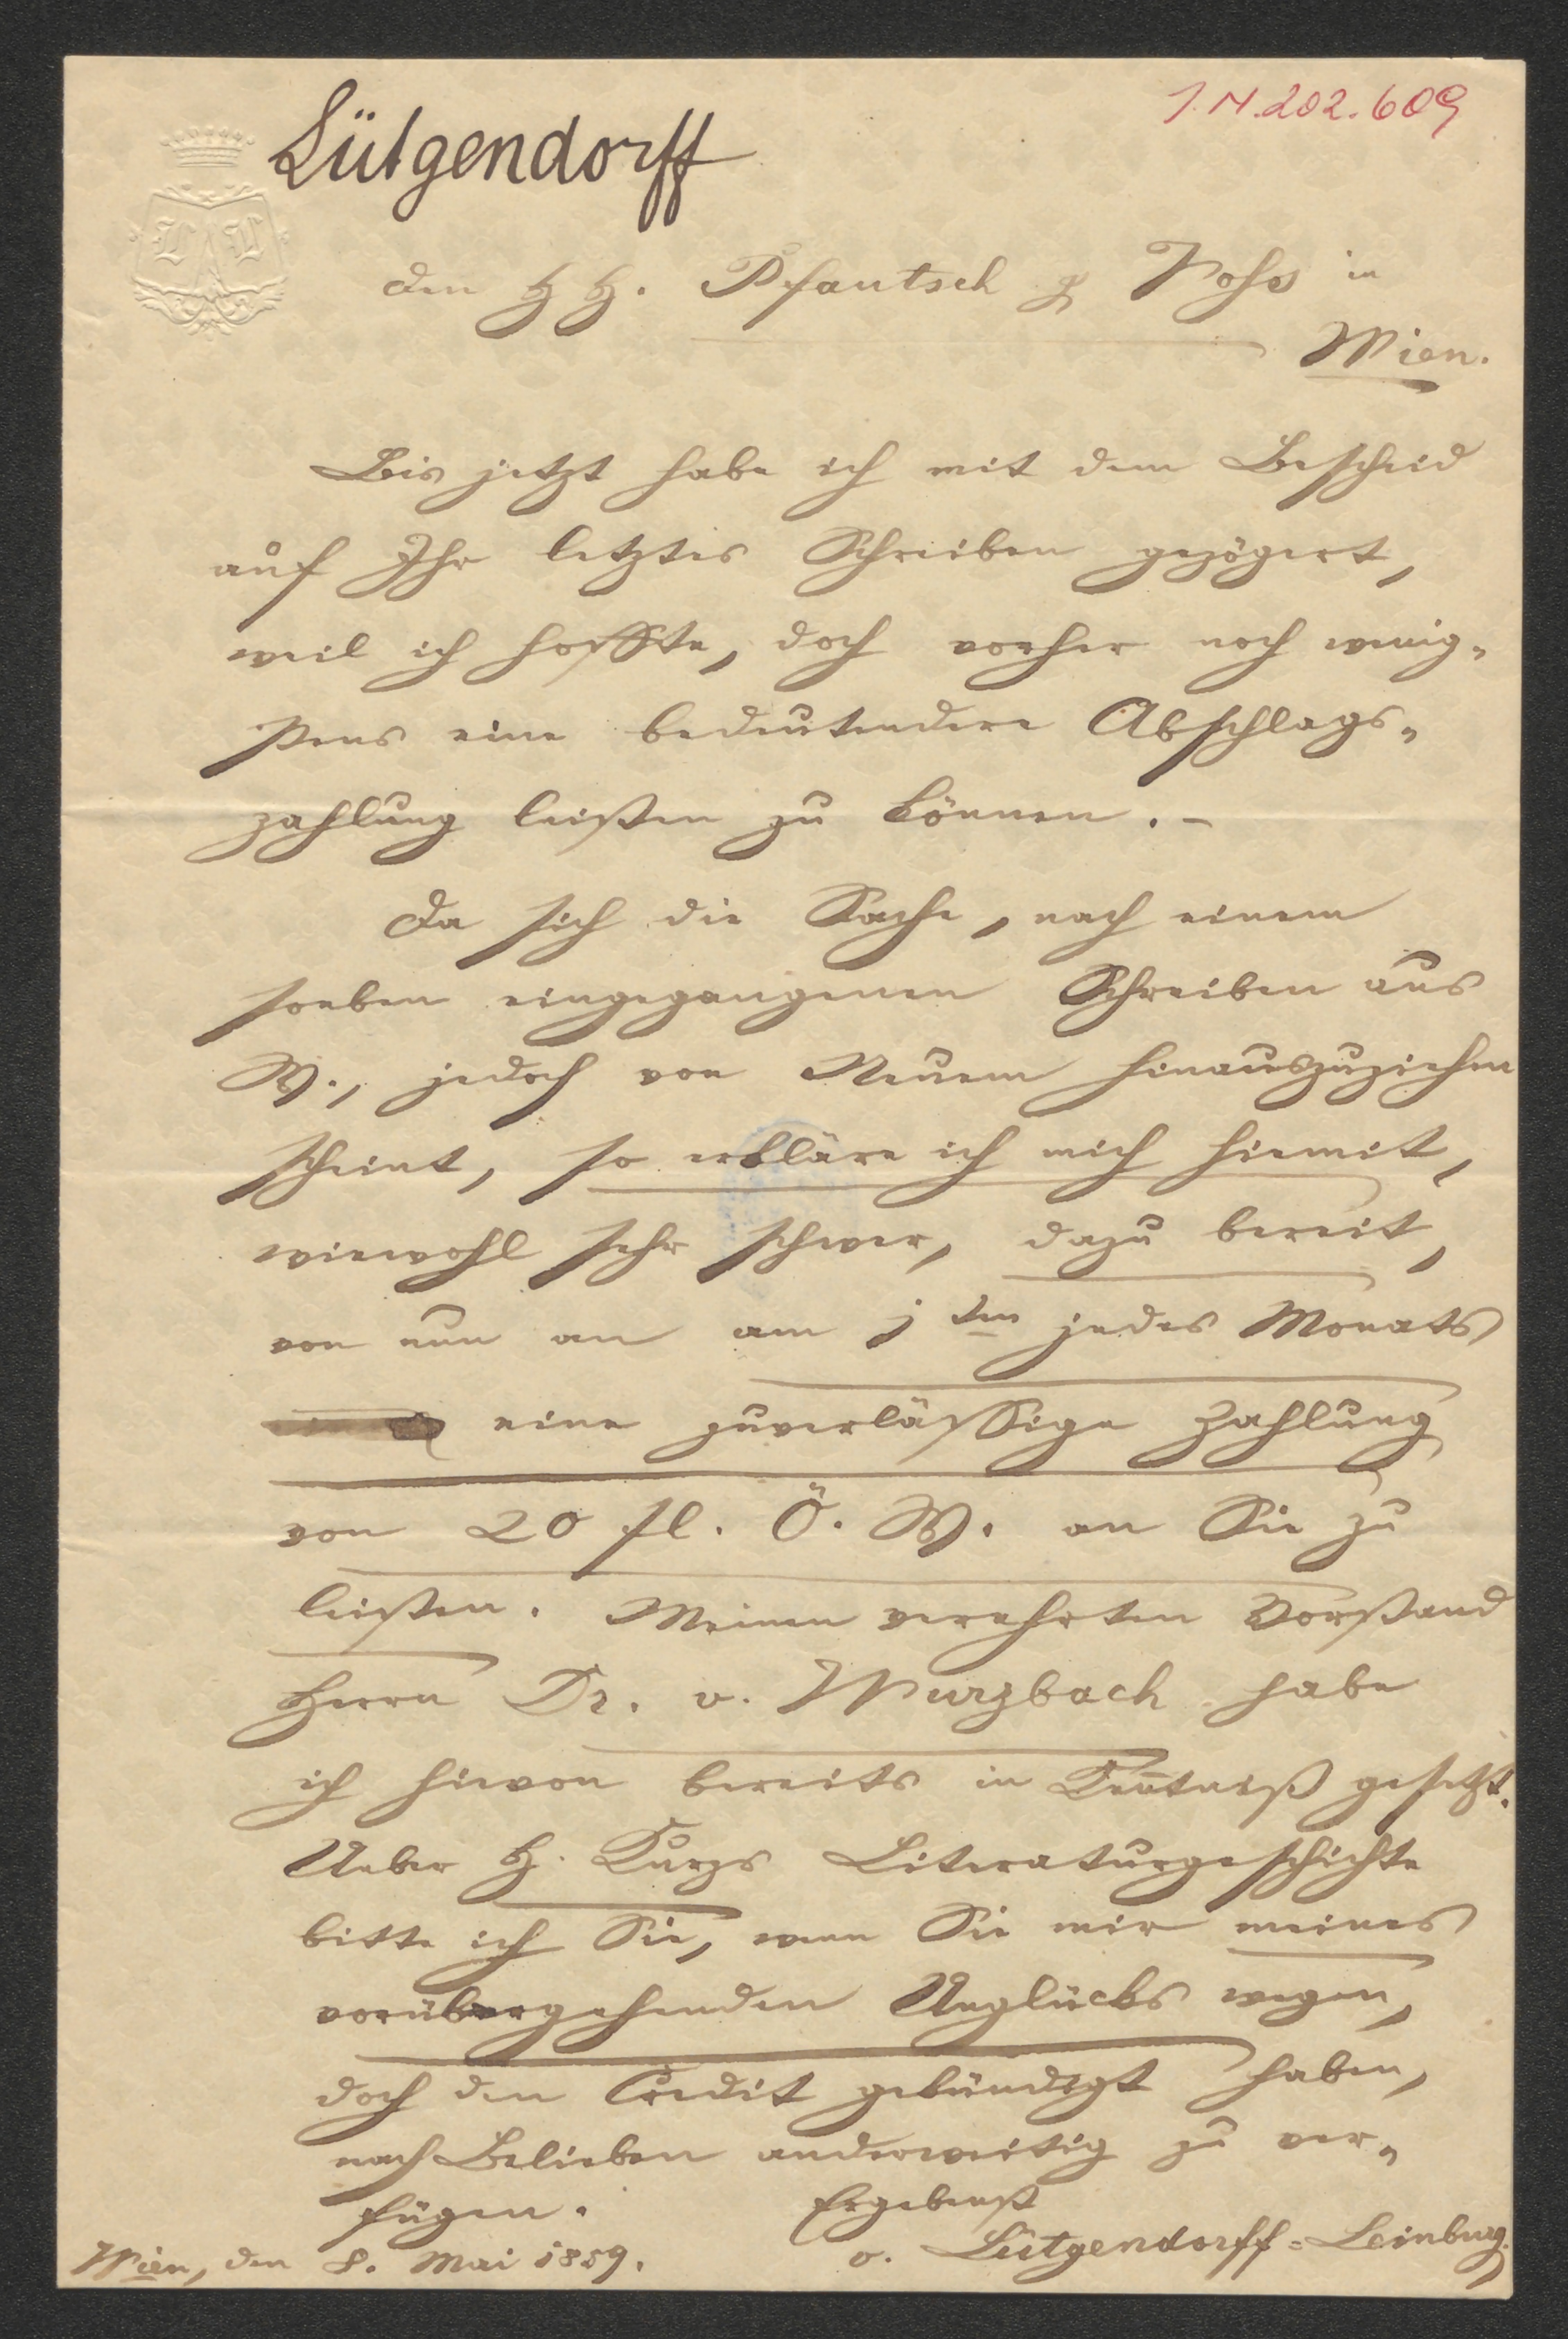 J.N. 202.609
Lütgendorff
L L
Den HH. Pfautsch & Voß in
Wien.
Bis jetzt habe ich mit dem Bescheid
auf Ihr letztes Schreiben gezögert,
weil ich hoffte, doch vorher noch wenig-
stens eine bedeutendere Abschlags-
zahlung leisten zu können. -
Da sich die Sache, nach einem
soeben eingegangenen Schreiben aus
W., jedoch von Neuem hinauszuziehen
scheint, so erkläre ich mich hiemit,
wiewohl sehr schwer, dazu bereit,
von nun an am 1ten jedes Monats
eine zuverlässige Zahlung
von 20 fl. Ö. W. an Sie zu
leisten. Meinen verehrten Vorstand
Herrn Dr. v. Wurzbach habe
ich hievon bereits in Keñtniß gesetzt.
Ueber H. Kurzs Literaturgeschichte
bitte ich Sie, wenn Sie mir meines
vorübergehenden Unglücks wegen,
doch den Credit gekündigt haben,
nach Belieben anderweitig zu ver-
fügen.
Ergebenst
v. Lütgendorff-Leinburg.
Wien, den 8. Mai 1859.